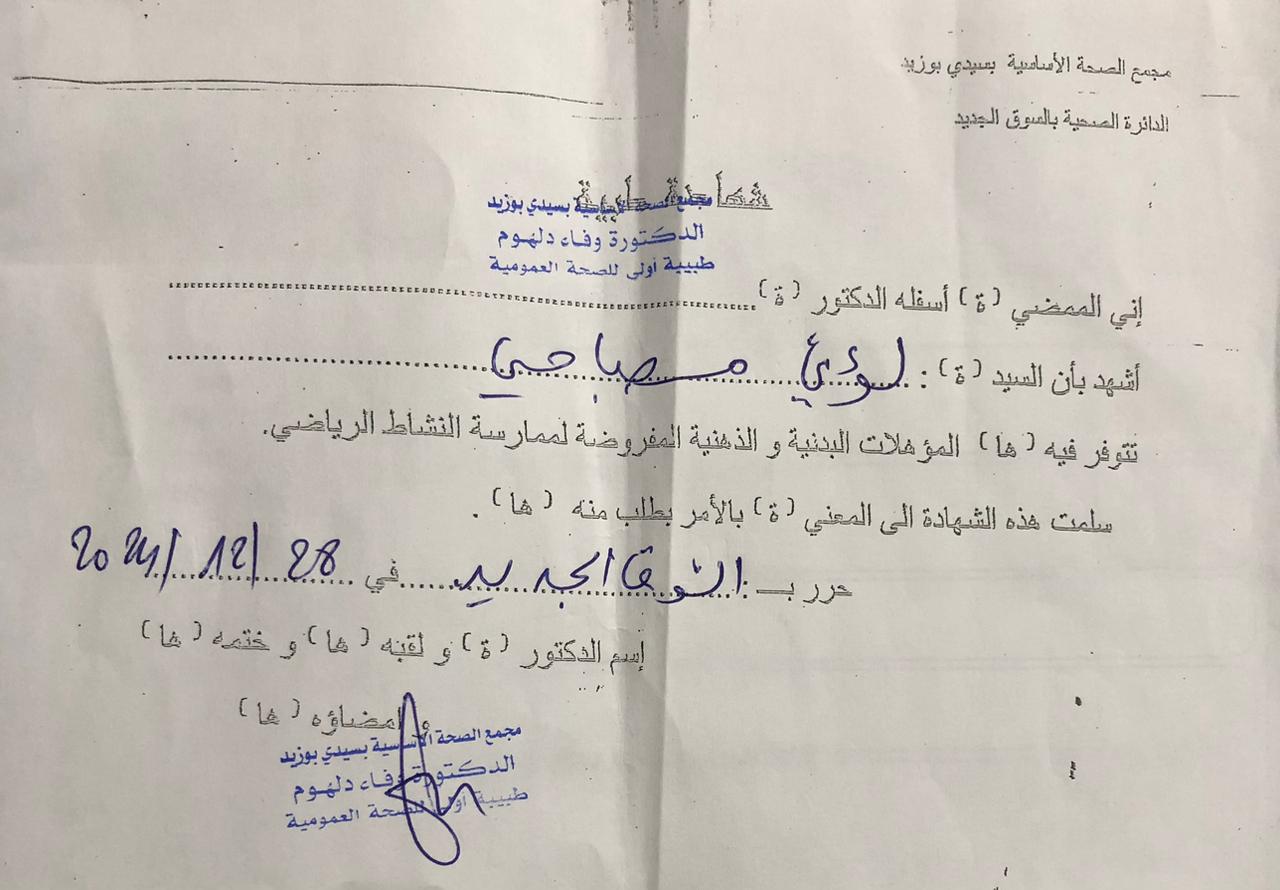 مجمع الصحة الأساسية بسيدي بوزيد
الدائرة الصحية بالسوق الجديد
شهادة طبية
مجمع الصحة الأساسية بسيدي بوزيد
الدكتورة وفاء دلهوم
طبيبة أولى للصحة العمومية
إني الممضي (ة) أسفله الدكتور (ة)
أشهد بأن السيد (ة) : لؤي مصباحي
تتوفر فيه (ها) المؤهلات البدنية و الذهنية المفروضة لممارسة النشاط الرياضي.
سلمت هذه الشهادة الى المعني (ة) بالأمر بطلب منه (ها) .
حرر بـ : السوق الجديد في 28 /12 /2021
إسم الدكتور (ة) و لقبه (ها) و ختمه (ها)
و إمضاؤه (ها)
مجمع الصحة الأساسية بسيدي بوزيد
الدكتورة وفاء دلهوم
طبيبة أولى للصحة العمومية